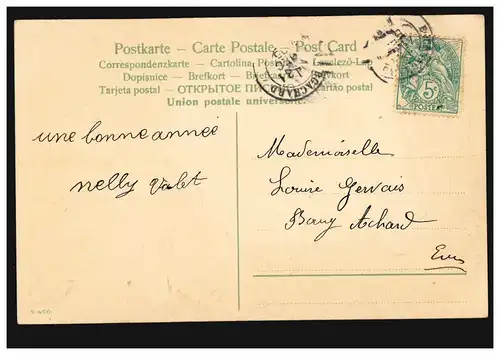 Postkarte - Carte Postale - Post Card
Correspondenzkarte - Cartolina Levelező-Lap
Dopisnice - Brefkort -
Tarjeta postal - ОТКРЫТОЕ Cartão postal
Union postale universelle.
5c
POSTES
ACHARD
une bonne année
nelly Valet
Mademoiselle
Louise Gervais
Bourg Achard
Eure